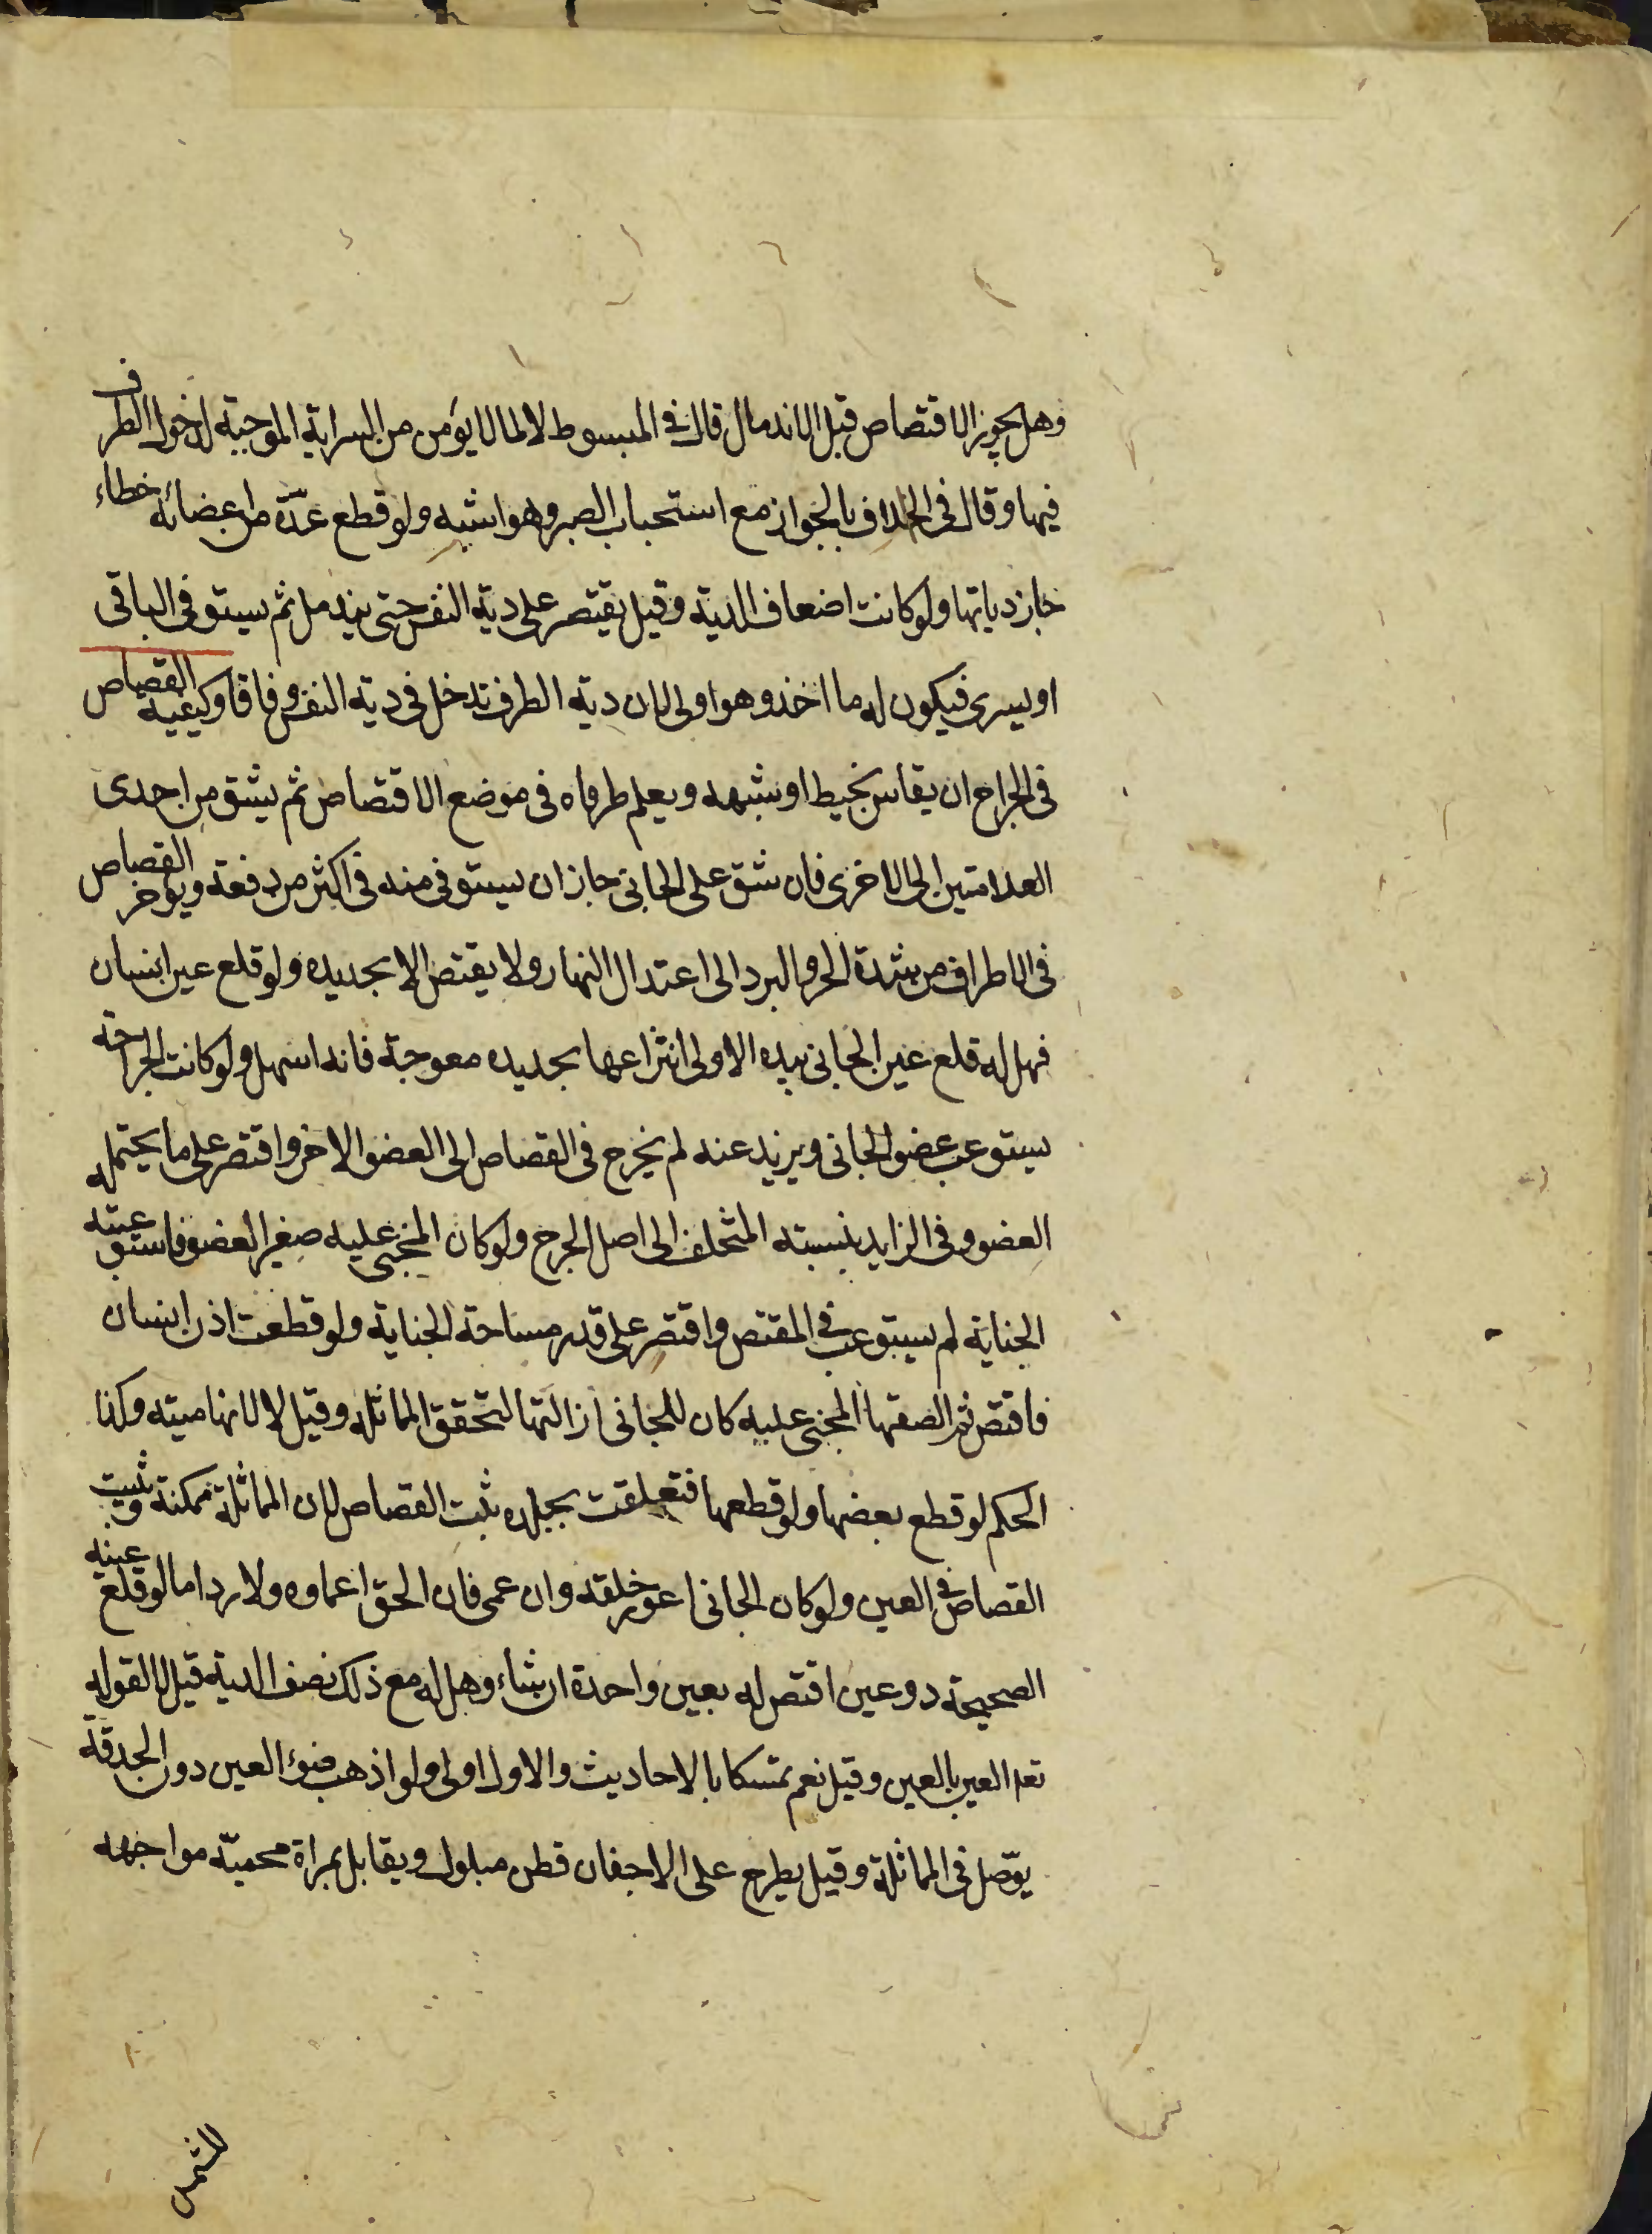 وهل يجوز الاقتصاص قبل الاندمال قال في المبسوط لا لما لا يؤمن من السراية الموجبة لدخول الطرف
فيها وقال في الخلاف بالجواز مع استحباب الصبر وهو اشبه ولو قطع عدّة من اعضائه خطاء
جاز دياتها ولو كانت اضعاف الدية وقيل يقتصر على دية النفس حتى يندمل ثم يستوفي الباقي
او يسرى فيكون له ما اخذ وهو اولى لان دية الطرف تدخل في دية النفس وفاقا وكيفية القصاص
في الجراح ان يقاس بخيط او شبهه ويعلم طرفاه في موضع الاقتصاص ثم يشق من احدى
العلامتين الى الاخرى فان شق على الجاني جاز ان يستوفى منه في اكثر من دفعة ويؤخر القصاص
في الاطراف من شدة الحر والبرد الى اعتدال النهار ولا يقتص الا بحديده ولو قلع عين انسان
فهل له قلع عين الجاني بيده الاولى انتزاعها بحديده معوجة فانه اسهل ولو كانت الجراحة
يستوعب عضو الجاني ويزيد عنه لم يخرج في القصاص الى العضو الاخر واقتصر على ما يحتمله
العضو وفي الزايد بنسبته المتخلف الى اصل الجرح ولو كان المجنى عليه صغير العضو فاستوعبته
الجناية لم يستوعب في المقتص واقتصر على قدر مساحة الجناية ولو قطعت اذن انسان
فاقتص ثم الصقها المجنى عليه كان للجاني ازالتها لتحقق المماثلة وقيل لا لانها ميته وكذا
الحكم لو قطع بعضها ولو قطعها فتعلقت بجلده ثبت القصاص لان المماثلة ممكنة وثبت
القصاص في العين ولو كان الجاني اعور خلقه وان عمى فان الحق اعماه ولا رد اما لو قلع عينه
الصحيحة دو عين اقتص له بعين واحدة ان شاء وهل له مع ذلك نصف الدية قيل لا لقوله
تعه العين بالعين وقيل نعم تمسكا بالاحاديث والاول اولى ولو اذهب ضوء العين دون الحدقة
يوّصل في المماثلة وقيل يطرح على الاجفان قطن مبلول ويقابل بمراة محميّة مواجهه
للشمس